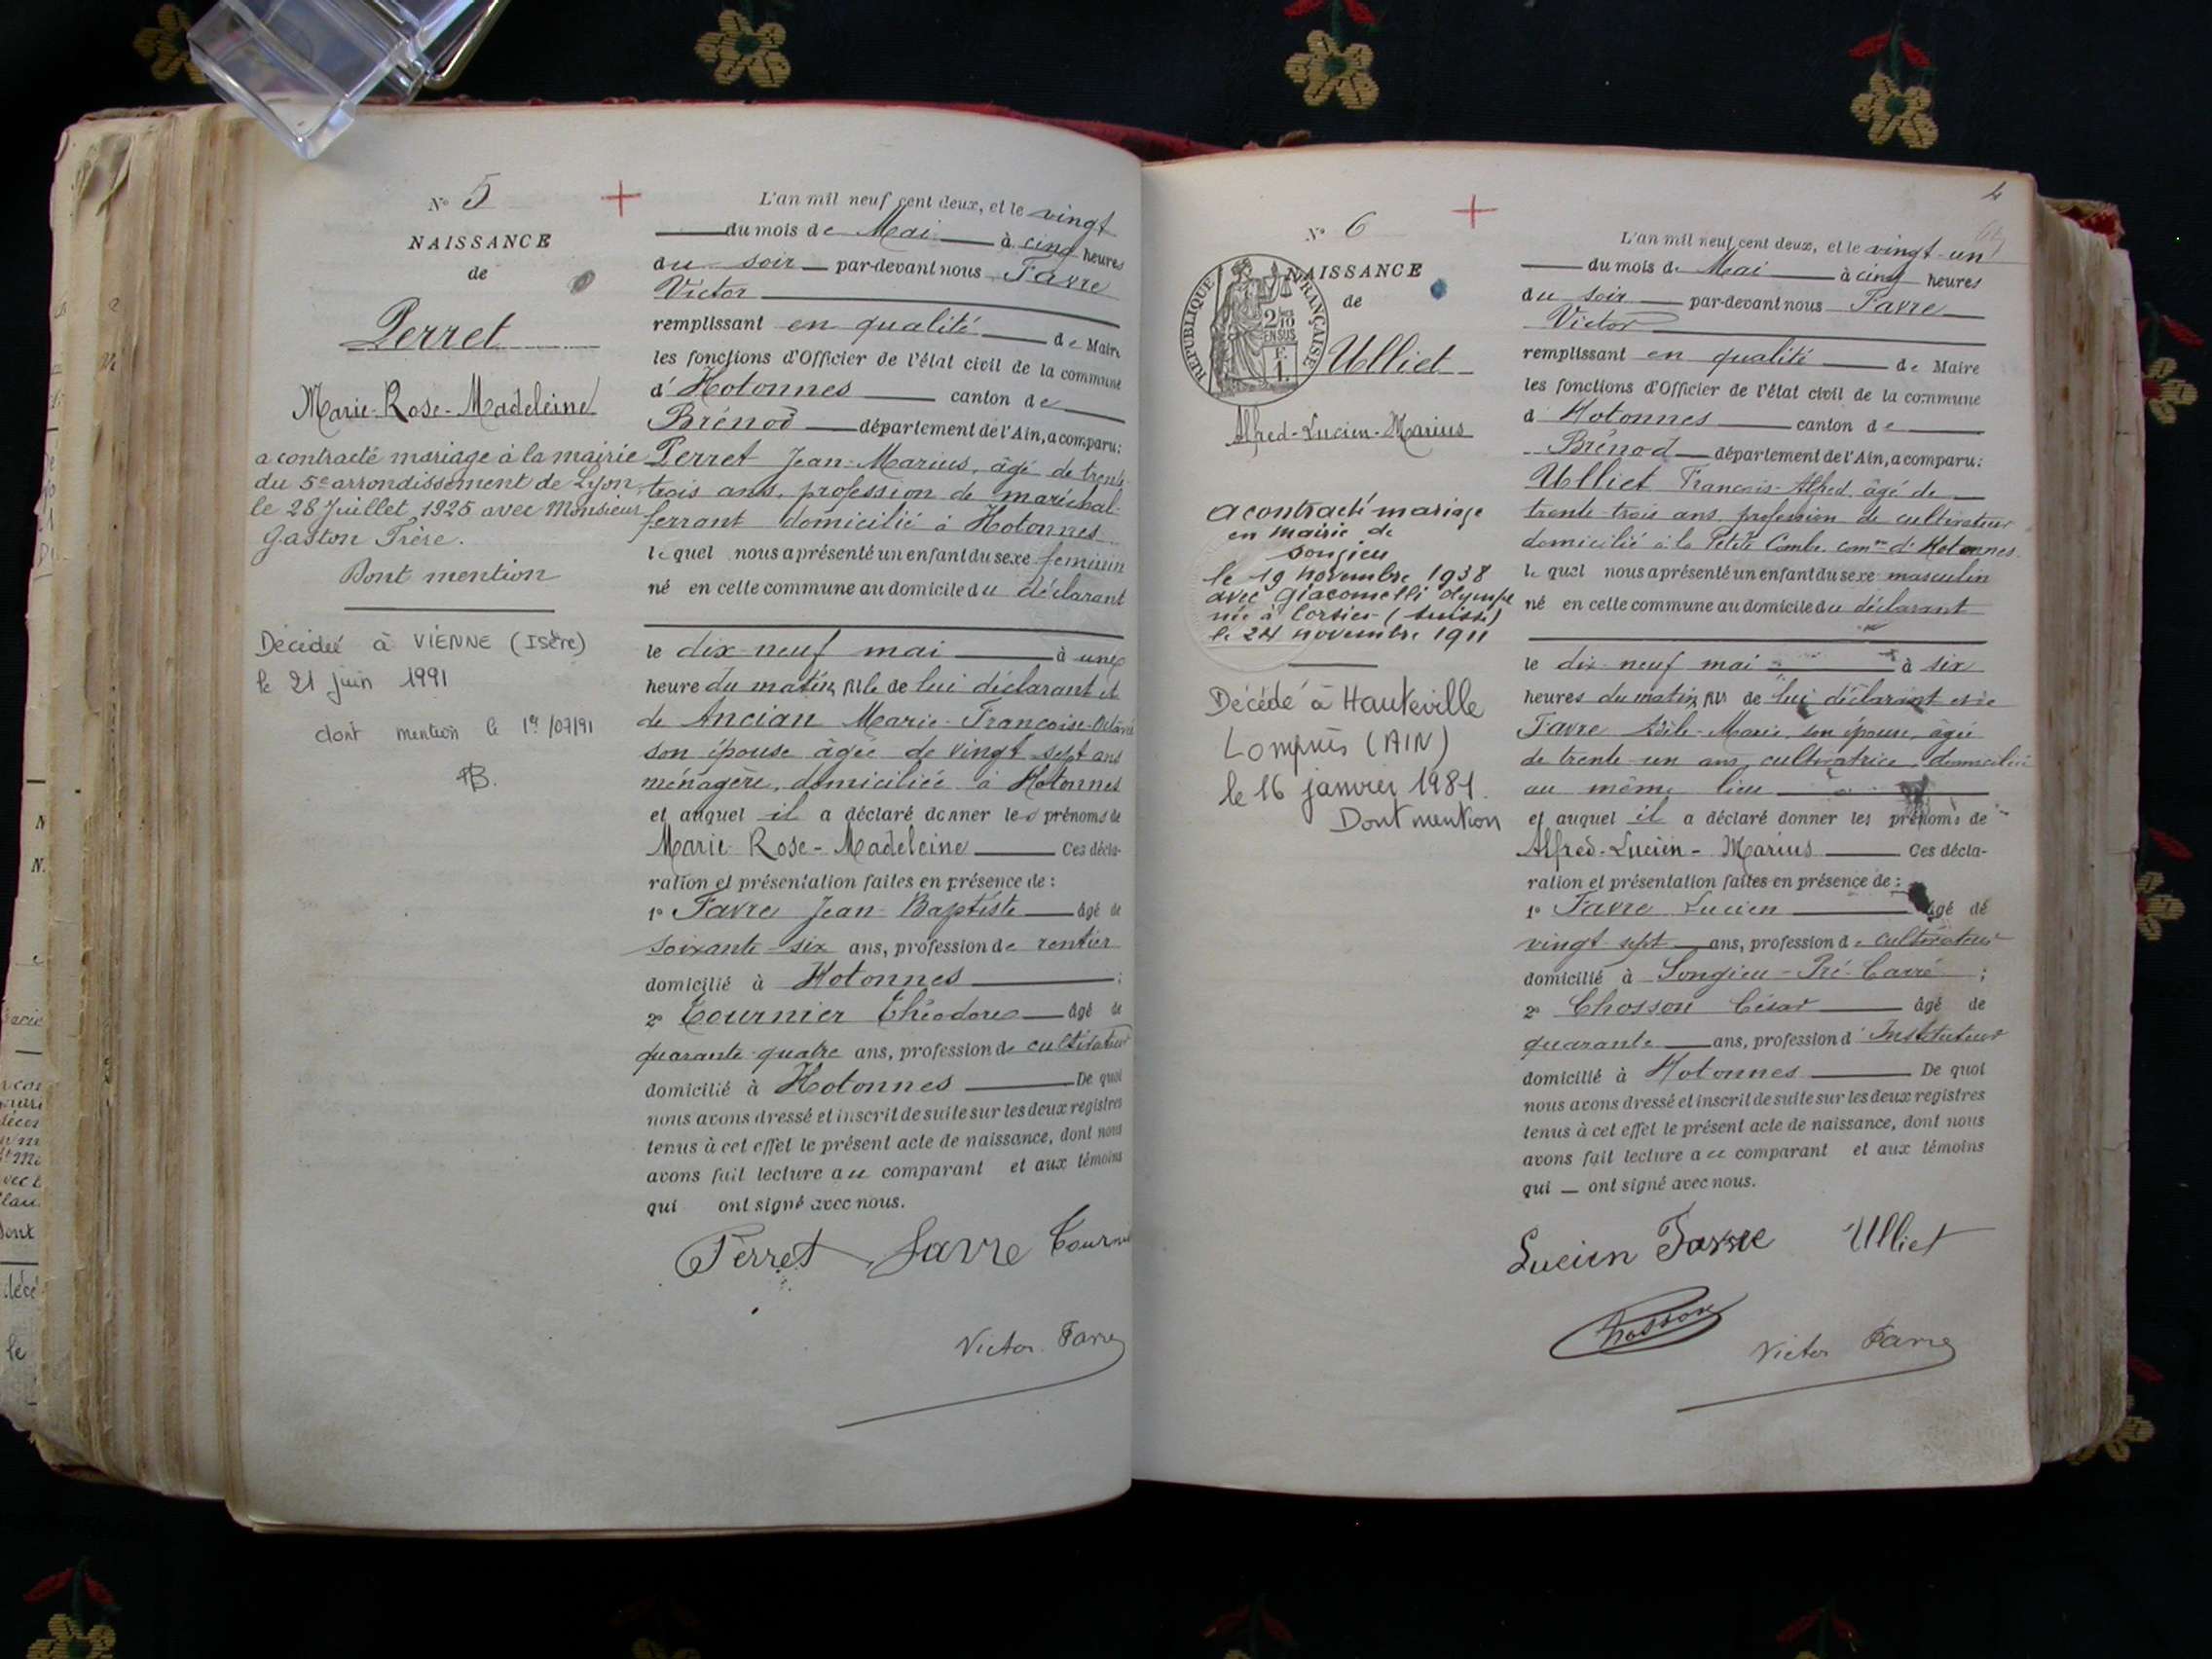 N° 5
NAISSANCE
de
Perret
Marie-Rose-Madeleine
a contracté mariage à la mairie
du 5e arrondissement de Lyon
le 28 Juillet 1925 avec Monsieur
Gaston Frère.
Dont mention
Décédée à VIENNE (Isère)
le 21 juin 1991
dont mention le 1er/07/91
L'an mil neuf cent deux, et le vingt
du mois de Mai à cinq heures
du soir par-devant nous Favre
Victor
remplissant en qualité de Maire
les fonctions d'Officier de l'état civil de la commune
d'Hotonnes canton de
Brénod département de l'Ain, a comparu:
Perret Jean-Marius, âgé de trente
trois ans, profession de maréchal-
ferrant domicilié à Hotonnes
lequel nous a présenté un enfant du sexe feminin
né en cette commune au domicile du déclarant
le dix-neuf mai à une
heure du matin, de lui déclarant et
de Ancian Marie-Françoise-
son épouse âgée de vingt sept ans
ménagère, domiciliée à Hotonnes
et auquel il a déclaré donner les prénoms de
Marie-Rose-Madeleine Ces décla-
ration et présentation faites en présence de :
1° Favre Jean-Baptiste âgé de
soixante-six ans, profession de rentier
domicilié à Hotonnes ;
2° Tournier Théodore âgé de
quarante-quatre ans, profession de cultivateur
domicilié à Hotonnes De quoi
nous avons dressé et inscrit de suite sur les deux registres
tenus à cet effet le présent acte de naissance, dont nous
avons fait lecture au comparant et aux témoins
qui ont signé avec nous.
Perret Favre Tourni
Victor Favre
4
N° 6
NAISSANCE
de
REPUBLIQUE FRANÇAISE
2/10 EN SUS
F. 1.
Ulliet
Alfred-Lucien-Marius
a contracté mariage
en mairie de
Songieu
le 19 novembre 1938
avec Giacometti Olympe
née à Corsier (Suisse)
le 24 novembre 1911
Décédé à Hauteville
Lompnès (AIN)
le 16 janvier 1981.
Dont mention
L'an mil neuf cent deux, et le vingt-un
du mois de Mai à cinq heures
du soir par-devant nous Favre
Victor
remplissant en qualité de Maire
les fonctions d'Officier de l'état civil de la commune
d'Hotonnes canton de
Brénod département de l'Ain, a comparu:
Ulliet François-Alfred, âgé de
trente-trois ans, profession de cultivateur
domicilié à la Petite Combe, comne d'Hotonnes
lequel nous a présenté un enfant du sexe masculin
né en cette commune au domicile du déclarant
le dix-neuf mai à six
heures du matin, de lui déclarant et de
Favre Marie, son épouse, âgée
de trente-un ans, cultivatrice, domiciliée
au même lieu
et auquel il a déclaré donner les prénoms de
Alfred-Lucien-Marius Ces décla-
ration et présentation faites en présence de :
1° Favre Lucien âgé de
vingt-sept ans, profession de cultivateur
domicilié à Songieu-Pré-Carré ;
2° Chosson César âgé de
quarante ans, profession d'Instituteur
domicilié à Hotonnes De quoi
nous avons dressé et inscrit de suite sur les deux registres
tenus à cet effet le présent acte de naissance, dont nous
avons fait lecture au comparant et aux témoins
qui ont signé avec nous.
Lucien Favre Ulliet
Chosson
Victor Favre